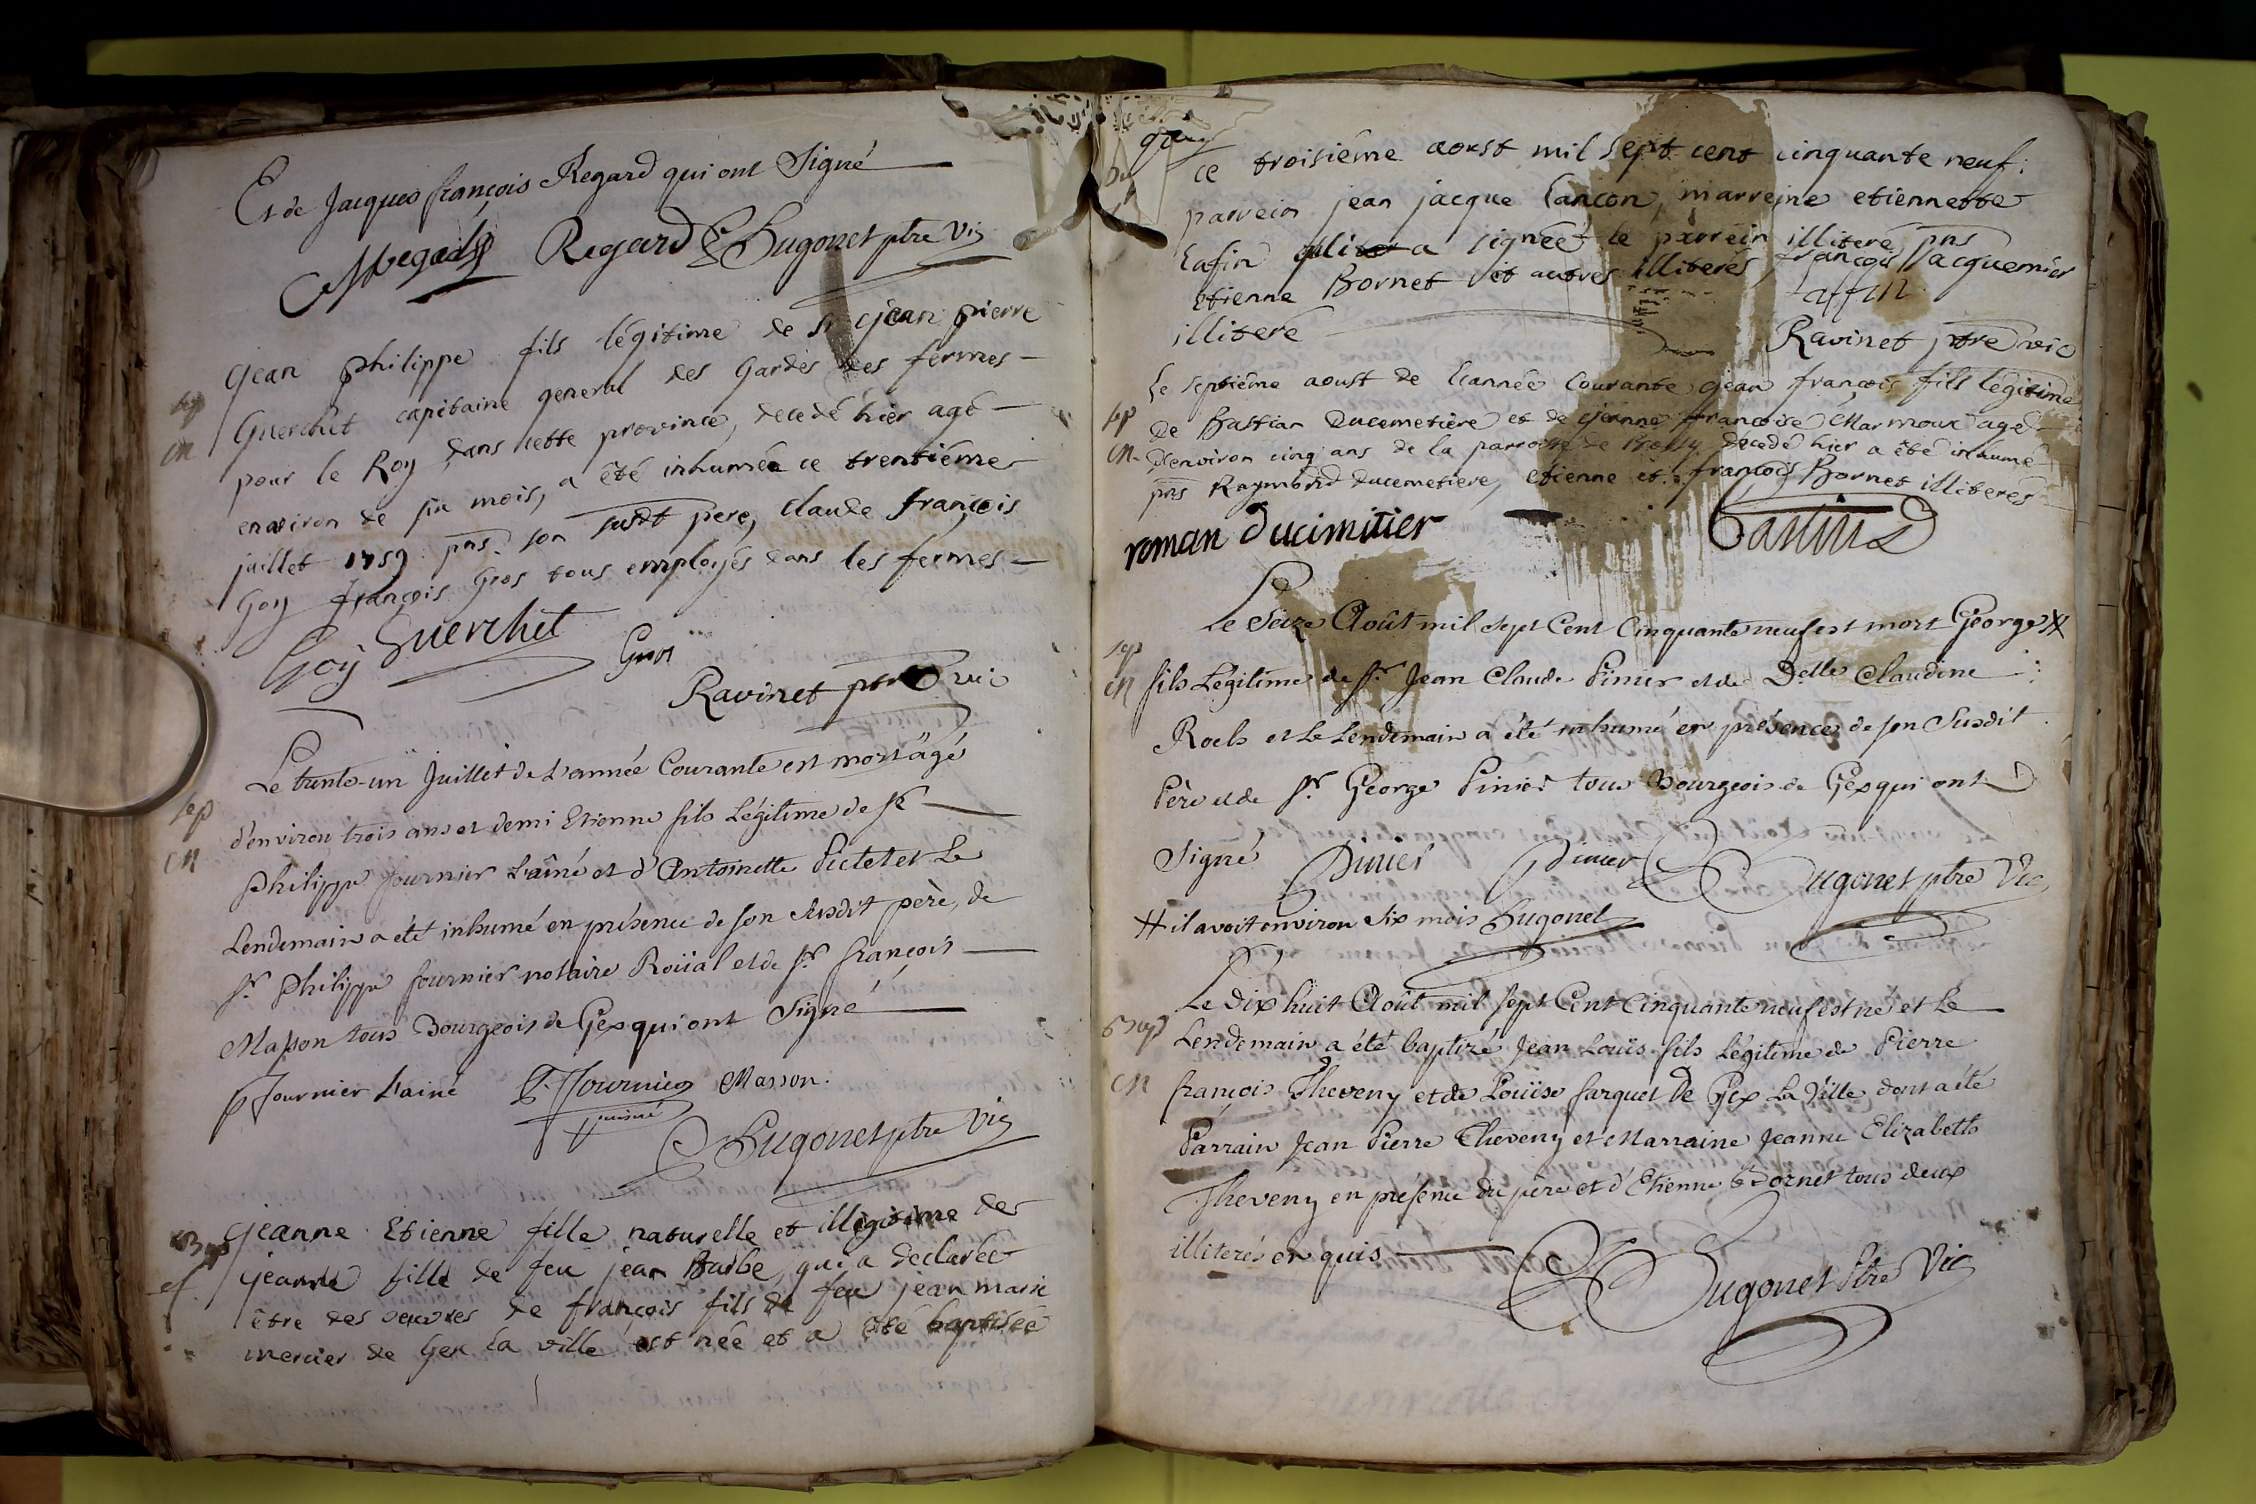 Et de Jacques françois Regard qui ont Signé
Regard Hugonet ptre Vic
sep
cm
jean philippe fils légitime de Sr jean pierre
Guerchet capitaine general des Gardes des fermes
pour le Roy dans cette province, decedé hier agé
environ de six mois, a été inhumée ce trentième
juillet 1759 pns son susdt pere, claude françois
Goy françois Gros tous employés dans les fermes
Goÿ Guerchet Gros
Ravinet ptre vic
sep
cm
Le trente-un Juillet de L'année Courante est mort âgé
d'environ trois ans et demi Etienne fils Légitime de Sr
Philippe fournier L'aîné et d'Antoinette Pictet et Le
Lendemain a été inhumé en présence de son Susdit père, de
Sr Philippe fournier notaire Roiial et de Sr françois
Masson tous Bourgeois de Gex qui ont Signé
p fournier L'ainé P. Fournier Masson.
Hugonet ptre Vic
Bap
cf
jeanne Etienne fille naturelle et illégitime de
jeanne fille de feu jean Barbe, qui a declarée
être des oeuvres de françois fils de feu jean marie
mercier de Gex la ville est née et a été baptisée
ce troisième aoust mil sept cent cinquante neuf:
parrein jean jacque Lançon, marreine etiennette
Lafin a signée le parrein illiteré pns
etienne Bornet et autres illiterés, françois jacquemier
illiteré laffin
Ravinet ptre vic
sep
cm
Le septième aoust de l'année Courante jean françois fils légitime
de Bastian Ducemetière et de jeanne françoise Marmoux agé
d'environ cinq ans de la parroisse de decedé hier a été inhumé
pns Raymond ducemetiere, etienne et françois Bornet illiterés
roman ducimitier
sep
cm
Le Seize Août mil sept Cent Cinquante neuf est mort George #
fils Légitime de Sr Jean Claude Pinier et de Delle Claudine
Roels et Le Lendemain a été inhumé en présence de son Susdit
Père et de Sr George Pinier tous Bourgeois de Gex qui ont
Signé Pinier Pinier Hugonet ptre Vic
# il avoit environ Six mois Hugonet
Bap
cm
Le Dix huit Août mil sept Cent Cinquante neuf est né et Le
Lendemain a été baptizé Jean Louïs fils Légitime de Pierre
françois Theveny et de Louïse farquet De Gex La Ville dont a été
Parrain Jean Pierre Theveny et Marraine Jeanne Elizabeth
Theveny en présence du père et d'Etienne Bornet tous deux
illiterés enquis
Hugonet Ptre Vic